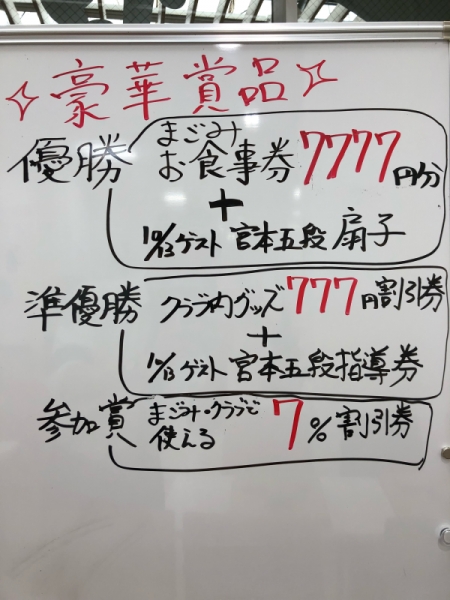 ☆豪華賞品☆
優勝 まごみ お食事券 7777円分
+
10/13ゲスト 宮本五段 扇子
準優勝 クラブ内グッズ 777円割引券
+
10/13ゲスト 宮本五段指導券
参加賞 まごみ・クラブで 使える 7%割引券